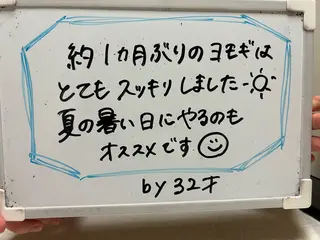 約1カ月ぶりのヨモギは
とてもスッキリしました
夏の暑い日にやるのも
オススメです
by 32才